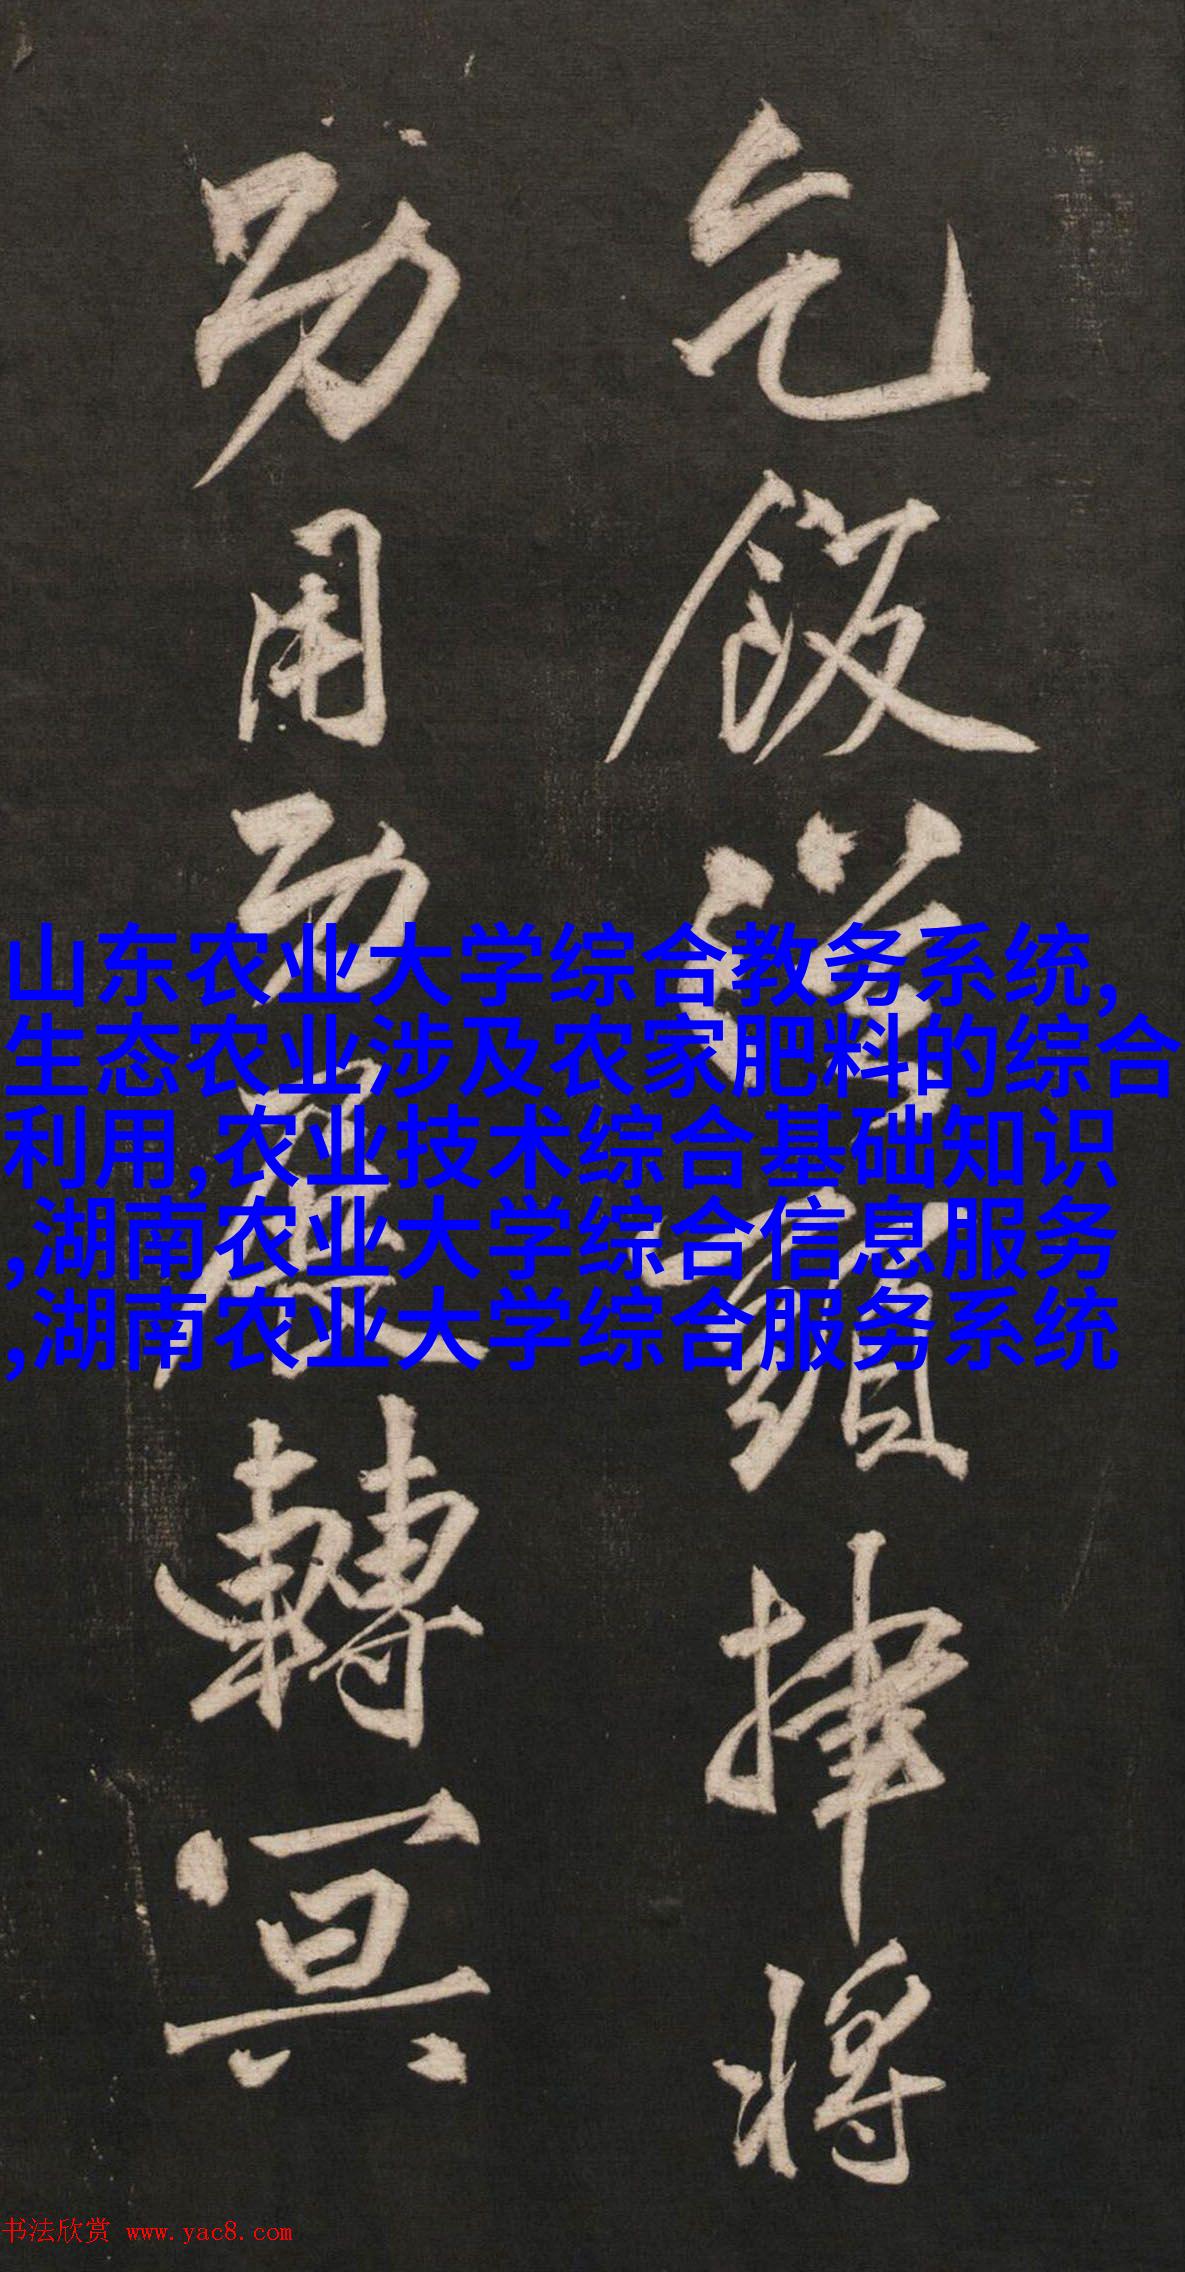 乞飯頭將
功用功展轉冥
山东农业大学综合教务系统,
生态农业涉及农家肥料的综合
利用,农业技术综合基础知识
,湖南农业大学综合信息服务
,湖南农业大学综合服务系统
书法欣赏 www.yac8.com